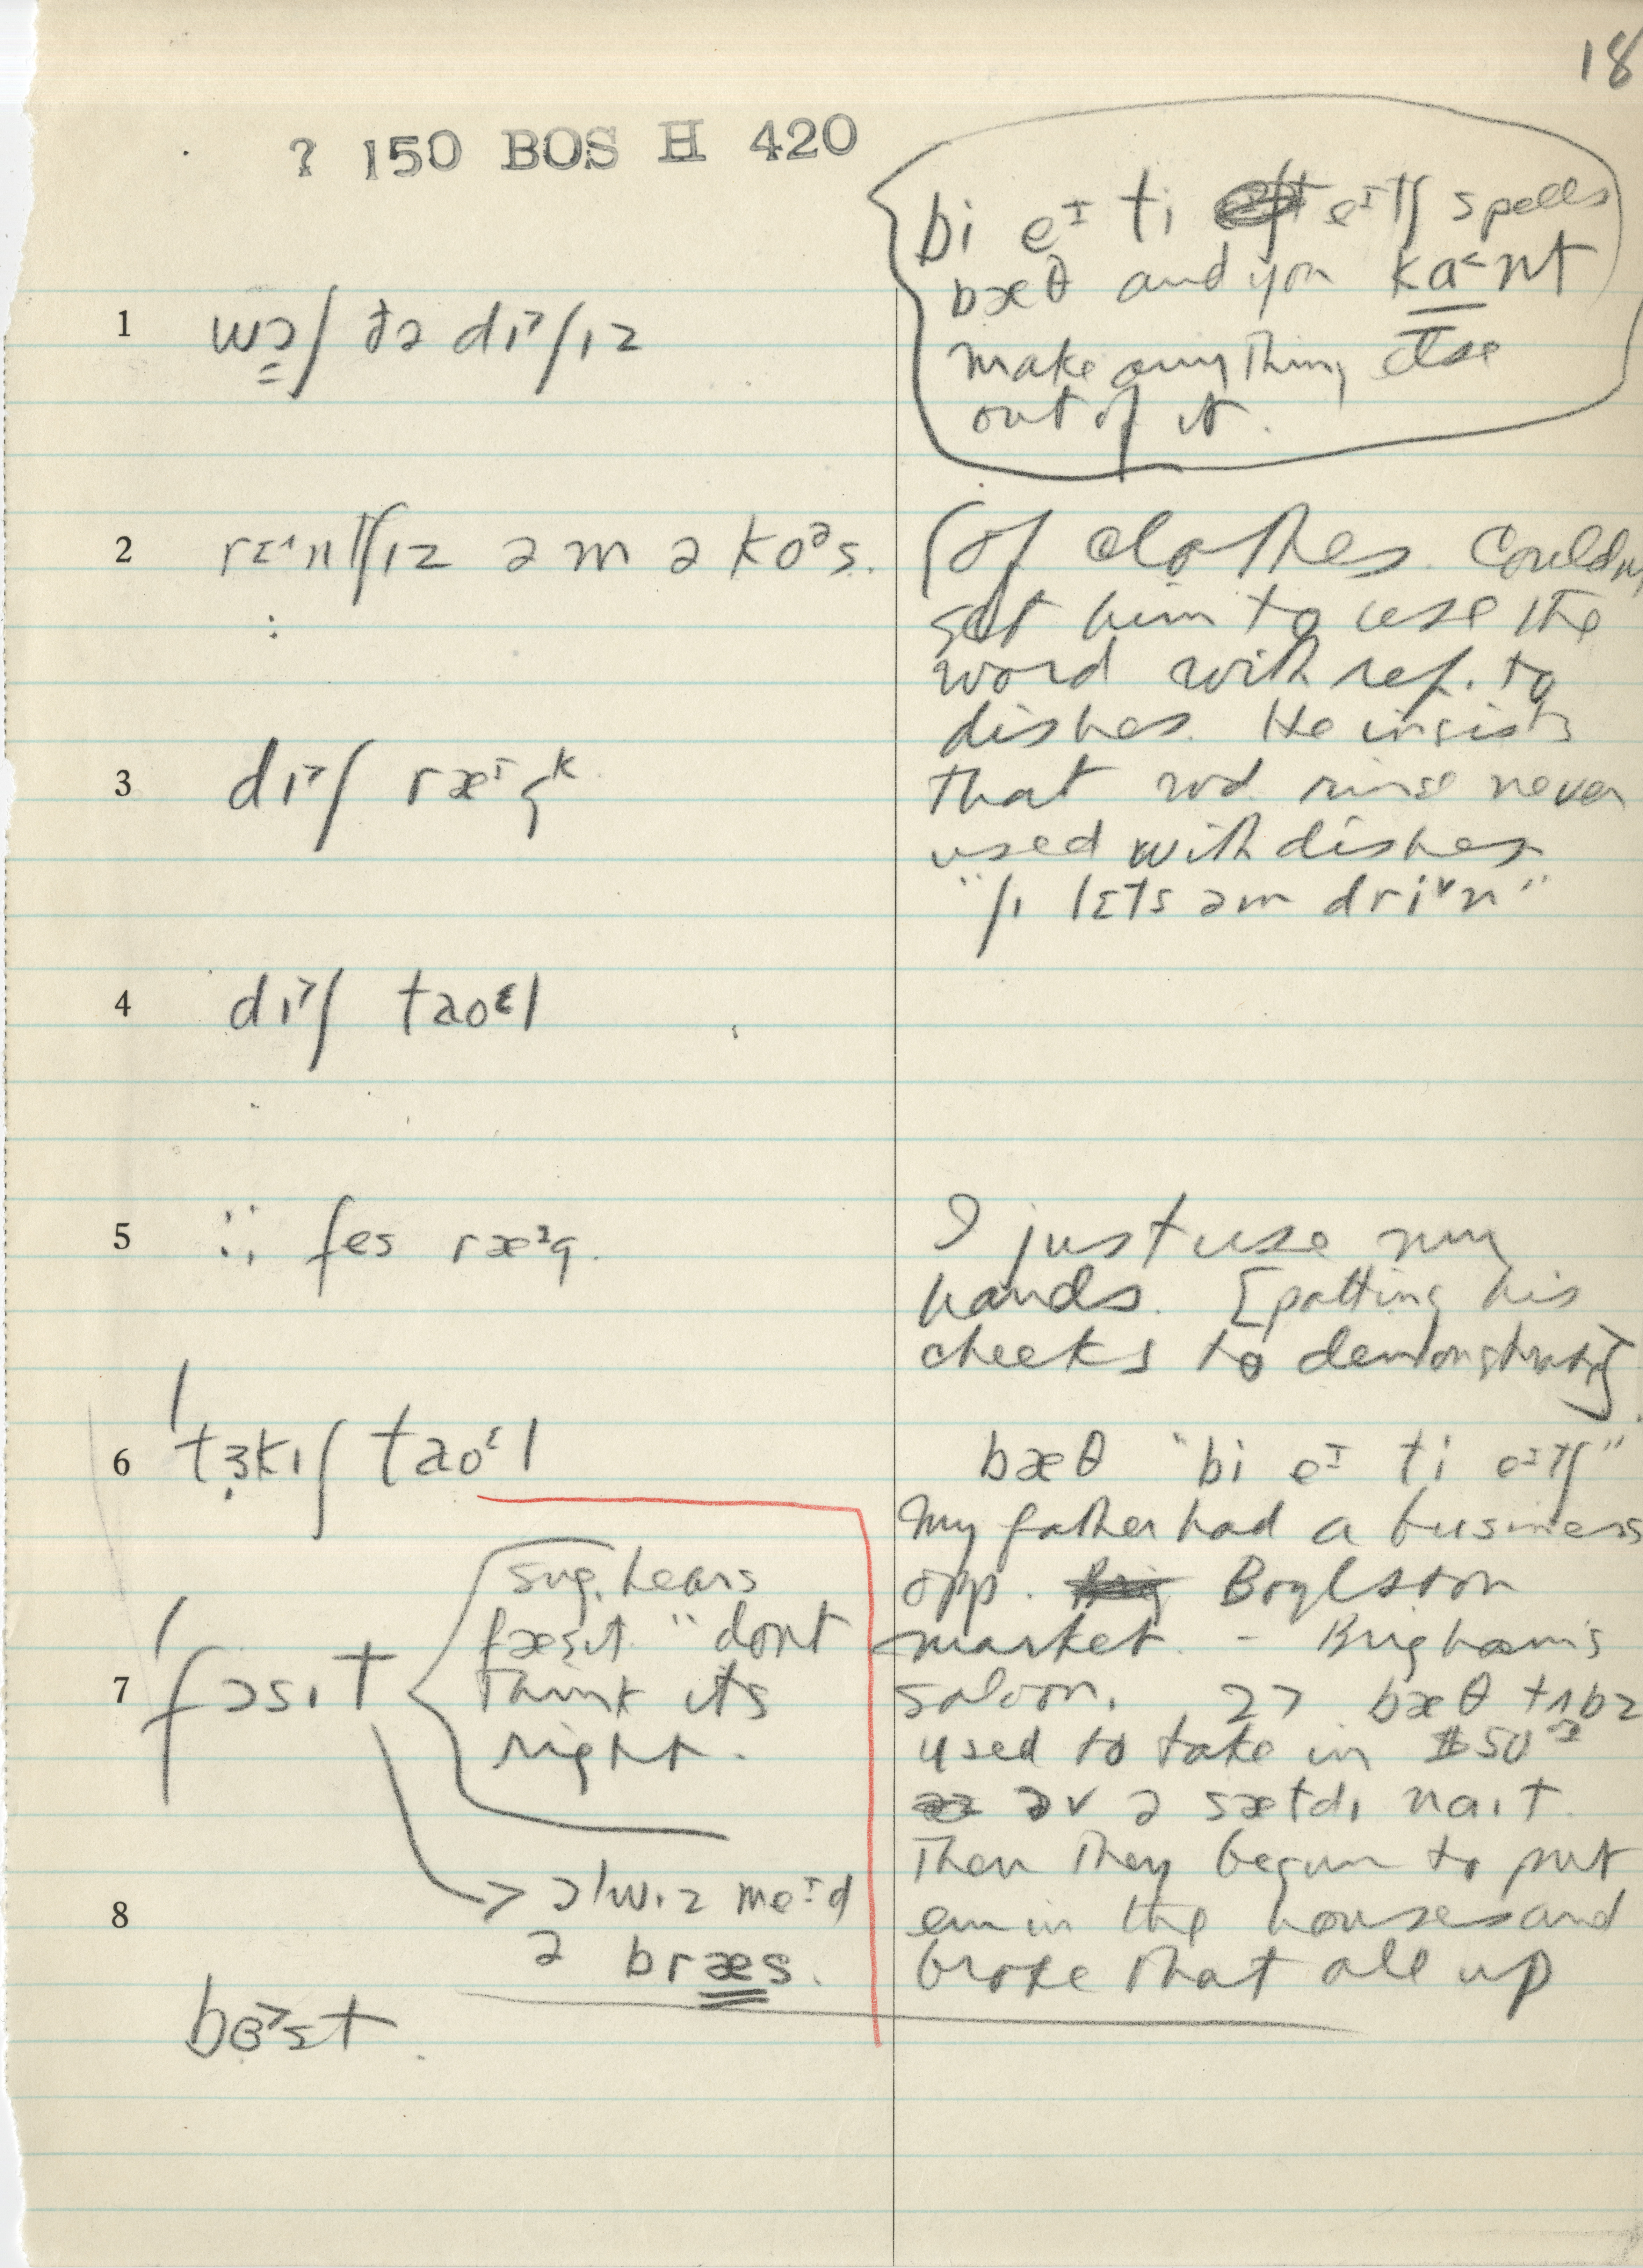 18
? 150 BOS H 420
bi eᴵ ti eᴵtʃ spells
bæθ and you ka˂nt
make anything else
out of it.
1 wɔʃ ðə dɪ˃ʃɪz
2 rɪ˄ntʃɪz əm ə koᵊs.
(of clothes. Couldn
get him to use the
word with ref. to
dishes. He insists
that wd. rinse never
used with dishes
"ʃɪ lɛts əm drɪ˅n"
3 dɪ˃ʃ
4 dɪ˃ʃ taoᵋl
5 fes ræᵊg.
I just use my
hands. [patting his
cheeks to demonstrate]
6 tɜkɪʃ taoᵋl
bæθ "bi eᴵ ti eᴵtʃ"
My father had a business
opp. Boylston
market. - Brigham's
saloon. 27 bæθ tʌbz
used to take in $50
əv ə sætdɪ naɪt.
Then they begun to put
em in the houses and
broke that all up
7 fɔsɪt
sug. hears
fæsɪt "dont
think its
right.
8 ɔlwɪz meᴵd
ə bræs.